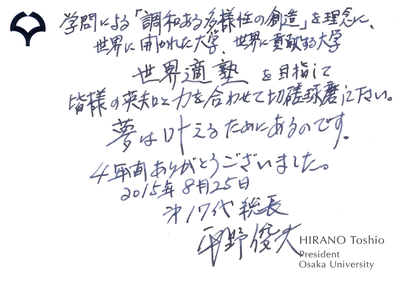 学問による「調和ある多様性の創造」を理念に、
世界に開かれた大学、世界に貢献する大学
世界適塾を目指して
皆様の英知と力を合わせて切磋琢磨下さい。
夢は叶えるためにあるのです。
4年間ありがとうございました。
2015年8月25日
第17代総長
平野俊夫
HIRANO Toshio
President
Osaka University